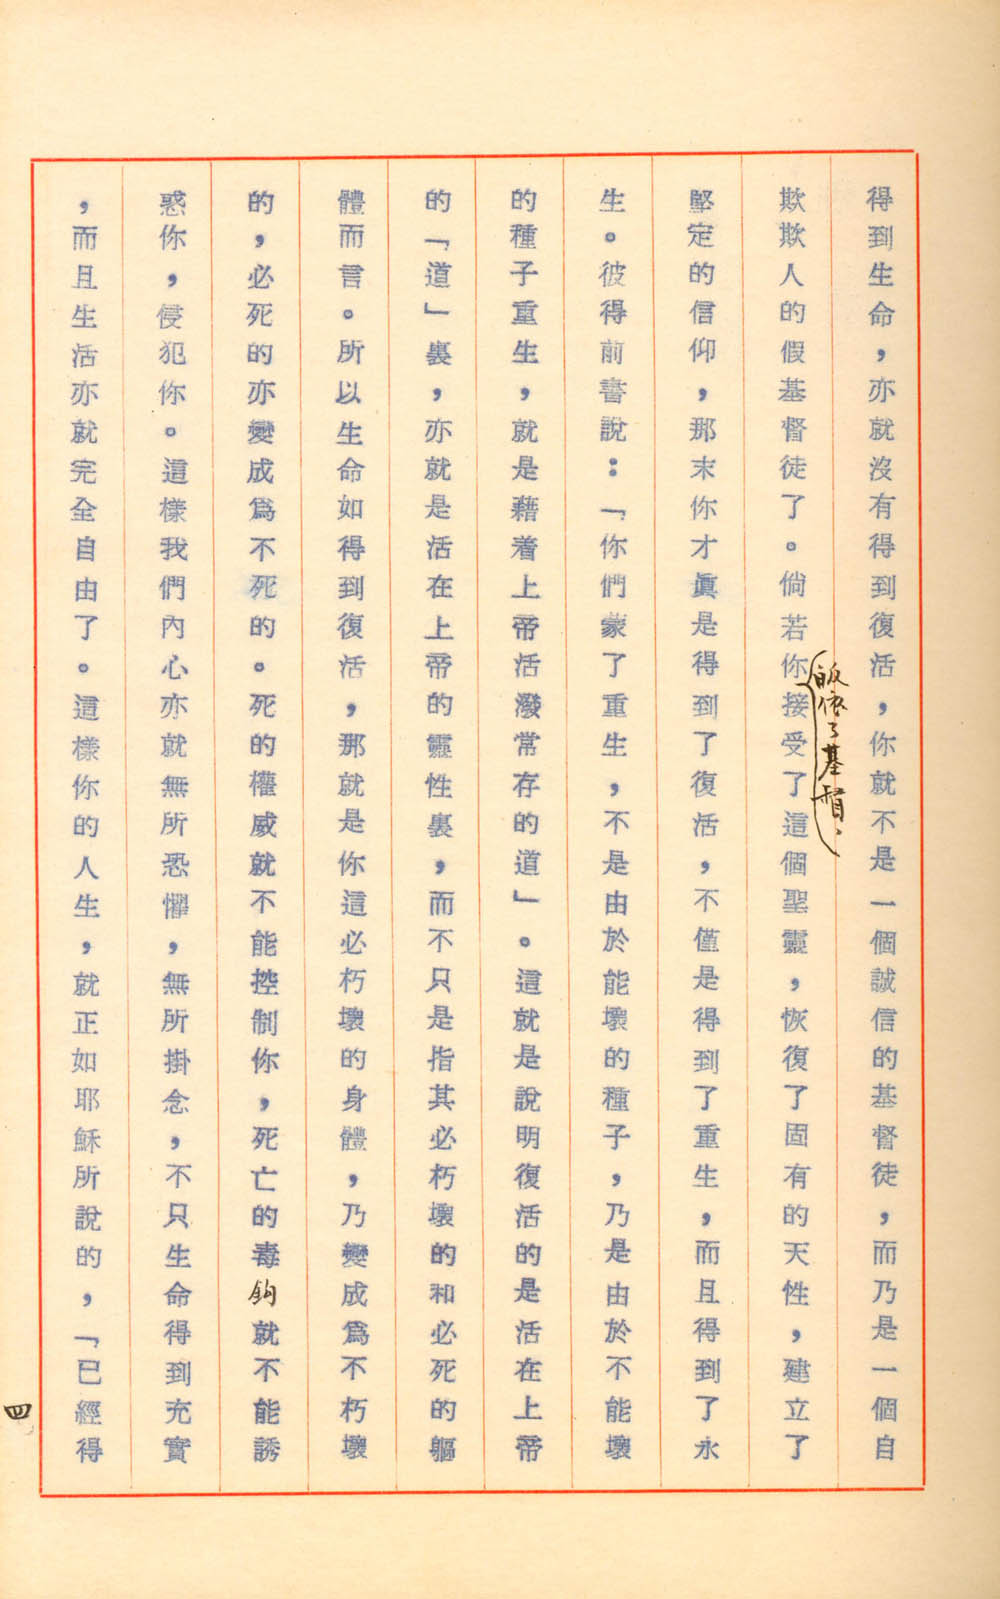 得到生命，亦就沒有得到復活，你就不是一個誠信的基督徒，而乃是一個自
皈依了基督、
欺欺人的假基督徒了。倘若你接受了這個聖靈，恢復了固有的天性，建立了
堅定的信仰，那末你才眞是得到了復活，不僅是得到了重生，而且得到了永
生。彼得前書說：「你們蒙了重生，不是由於能壞的種子，乃是由於不能壞
的種子重生，就是藉着上帝活潑常存的道」。這就是說明復活的是活在上帝
的「道」裏，亦就是活在上帝的靈性裏，而不只是指其必朽壞的和必死的軀
體而言。所以生命如得到復活，那就是你這必朽壞的身體，乃變成爲不朽壞
的，必死的亦變成爲不死的。死的權威就不能控制你，死亡的毒鈎就不能誘
惑你，侵犯你。這樣我們內心亦就無所恐懼，無所掛念，不只生命得到充實
，而且生活亦就完全自由了。這樣你的人生，就正如耶穌所說的，「已經得
四